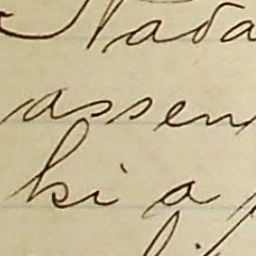 Nada
assen
ki a